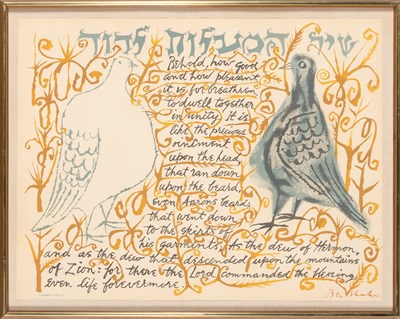 שיר המעלות לדוד
Behold, how good
and how pleasant
it is for breathren
to dwell together
in unity. It is
like the precious
ointment
upon the head,
that ran down
upon the beard,
even Aarons beard
that went down
to the skirts of
his garments; As the dew of Hermon,
and as the dew that descended upon the mountains
of Zion: for there the Lord commanded the blessing,
even life forevermore.
Ben Shahn